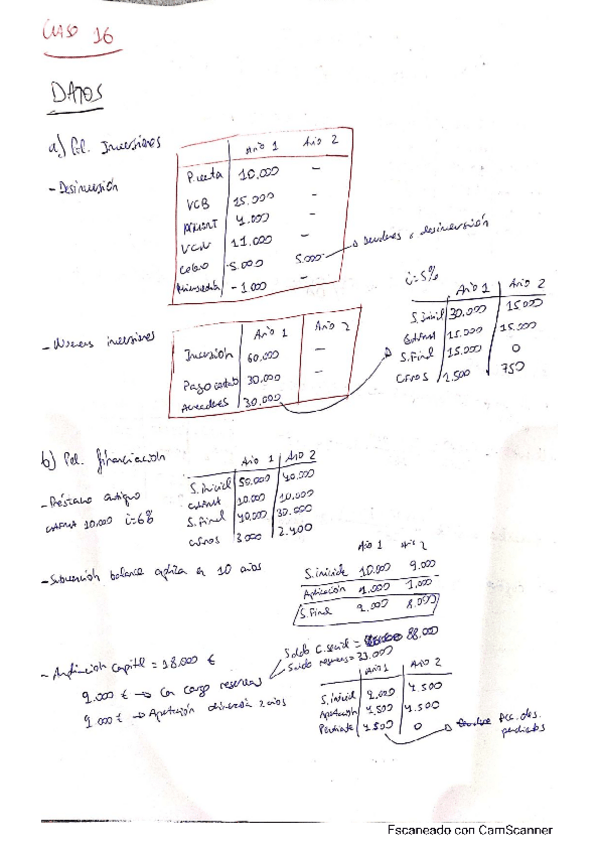 CASO 16
DATOS
a) Pl. Inversiones
- Desinversión
Año 1 Año 2
P. venta 10.000 -
VCB 15.000 -
AMORT 4.000 -
VCN 11.000 -
Cobro 5.000 5.000 → Deudores x desinversión
-1.000 -
- Nuevas inversiones
Año 1 Año 2
Inversión 60.000 -
Pago contado 30.000 -
Acreedores 30.000
i=5%
Año 1 Año 2
S. Inicial 30.000 15.000
15.000 15.000
S. Final 15.000 0
1.500 750
b) Pl. financiación
- Préstamo antiguo
10.000 i=6%
Año 1 Año 2
S. Inicial 50.000 40.000
10.000 10.000
S. Final 40.000 30.000
3.000 2.400
- Subvención balance aplica en 10 años
Año 1 Año 2
S. inicial 10.000 9.000
Aplicación 1.000 1.000
S. Final 9.000 8.000
- Ampliación Capital = 18.000 €
9.000 € → Con cargo reservas
9.000 € → Aportación 2 años
Saldo C. social = 88.000
Saldo reservas = 33.000
Año 1 Año 2
S. inicial 9.000 4.500
Aportación 4.500 4.500
Pendiente 4.500 0
Acc. des. pendientes
Escaneado con CamScanner